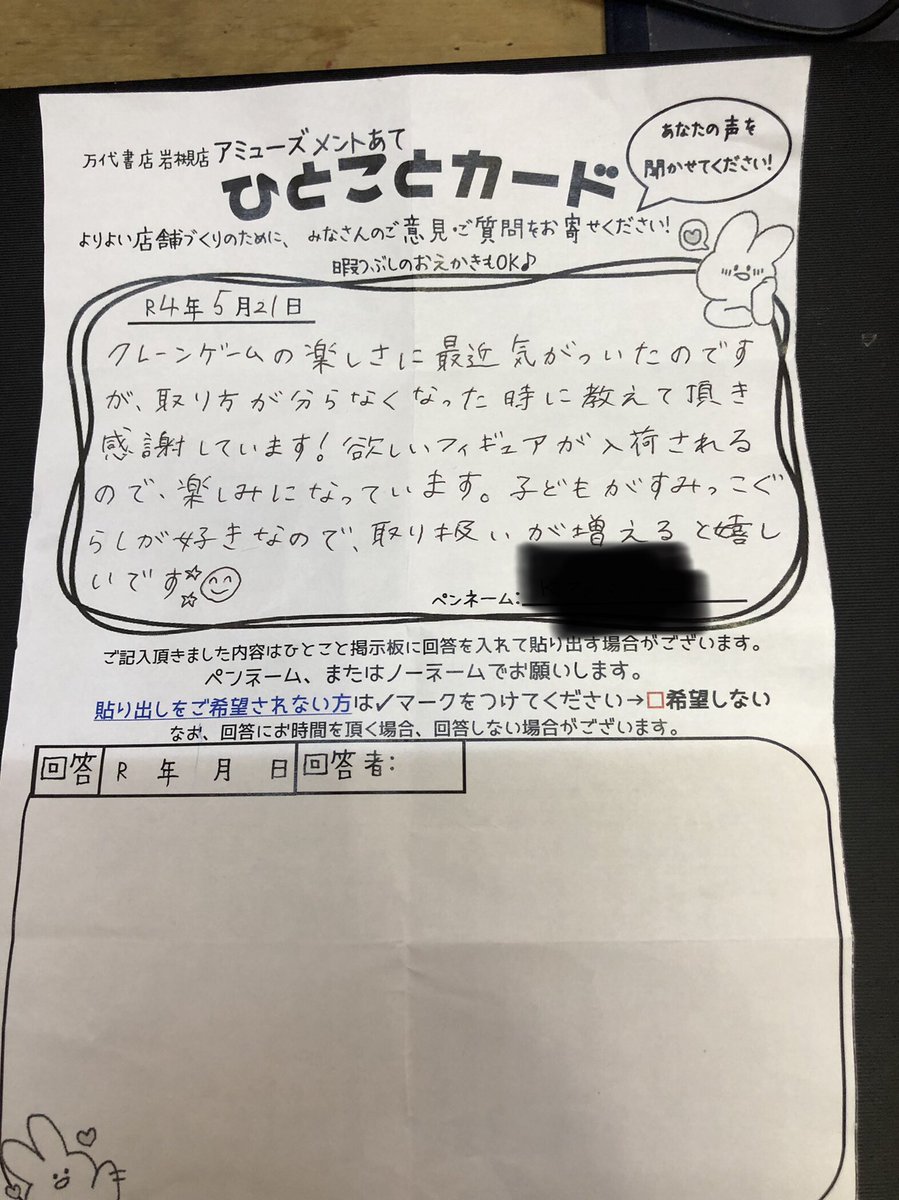 万代書店 岩槻店 アミューズメントあて
ひとことカード
あなたの声を
聞かせてください!
よりよい店舗づくりのために、みなさんのご意見・ご質問をお寄せください!
暇つぶしのおえかきもOK♪
R4年5月21日
クレーンゲームの楽しさに最近気がついたのです
が、取り方が分らなくなった時に教えて頂き
感謝しています!欲しいフィギュアが入荷される
ので、楽しみになっています。子どもがすみっこぐ
らしが好きなので、取り扱いが増えると嬉し
いです☆☆
ペンネーム:
ご記入頂きました内容はひとこと掲示板に回答を入れて貼り出す場合がございます。
ペンネーム、またはノーネームでお願いします。
貼り出しをご希望されない方は✓マークをつけてください→□希望しない
なお、回答にお時間を頂く場合、回答しない場合がございます。
回答 R 年 月 日 回答者: